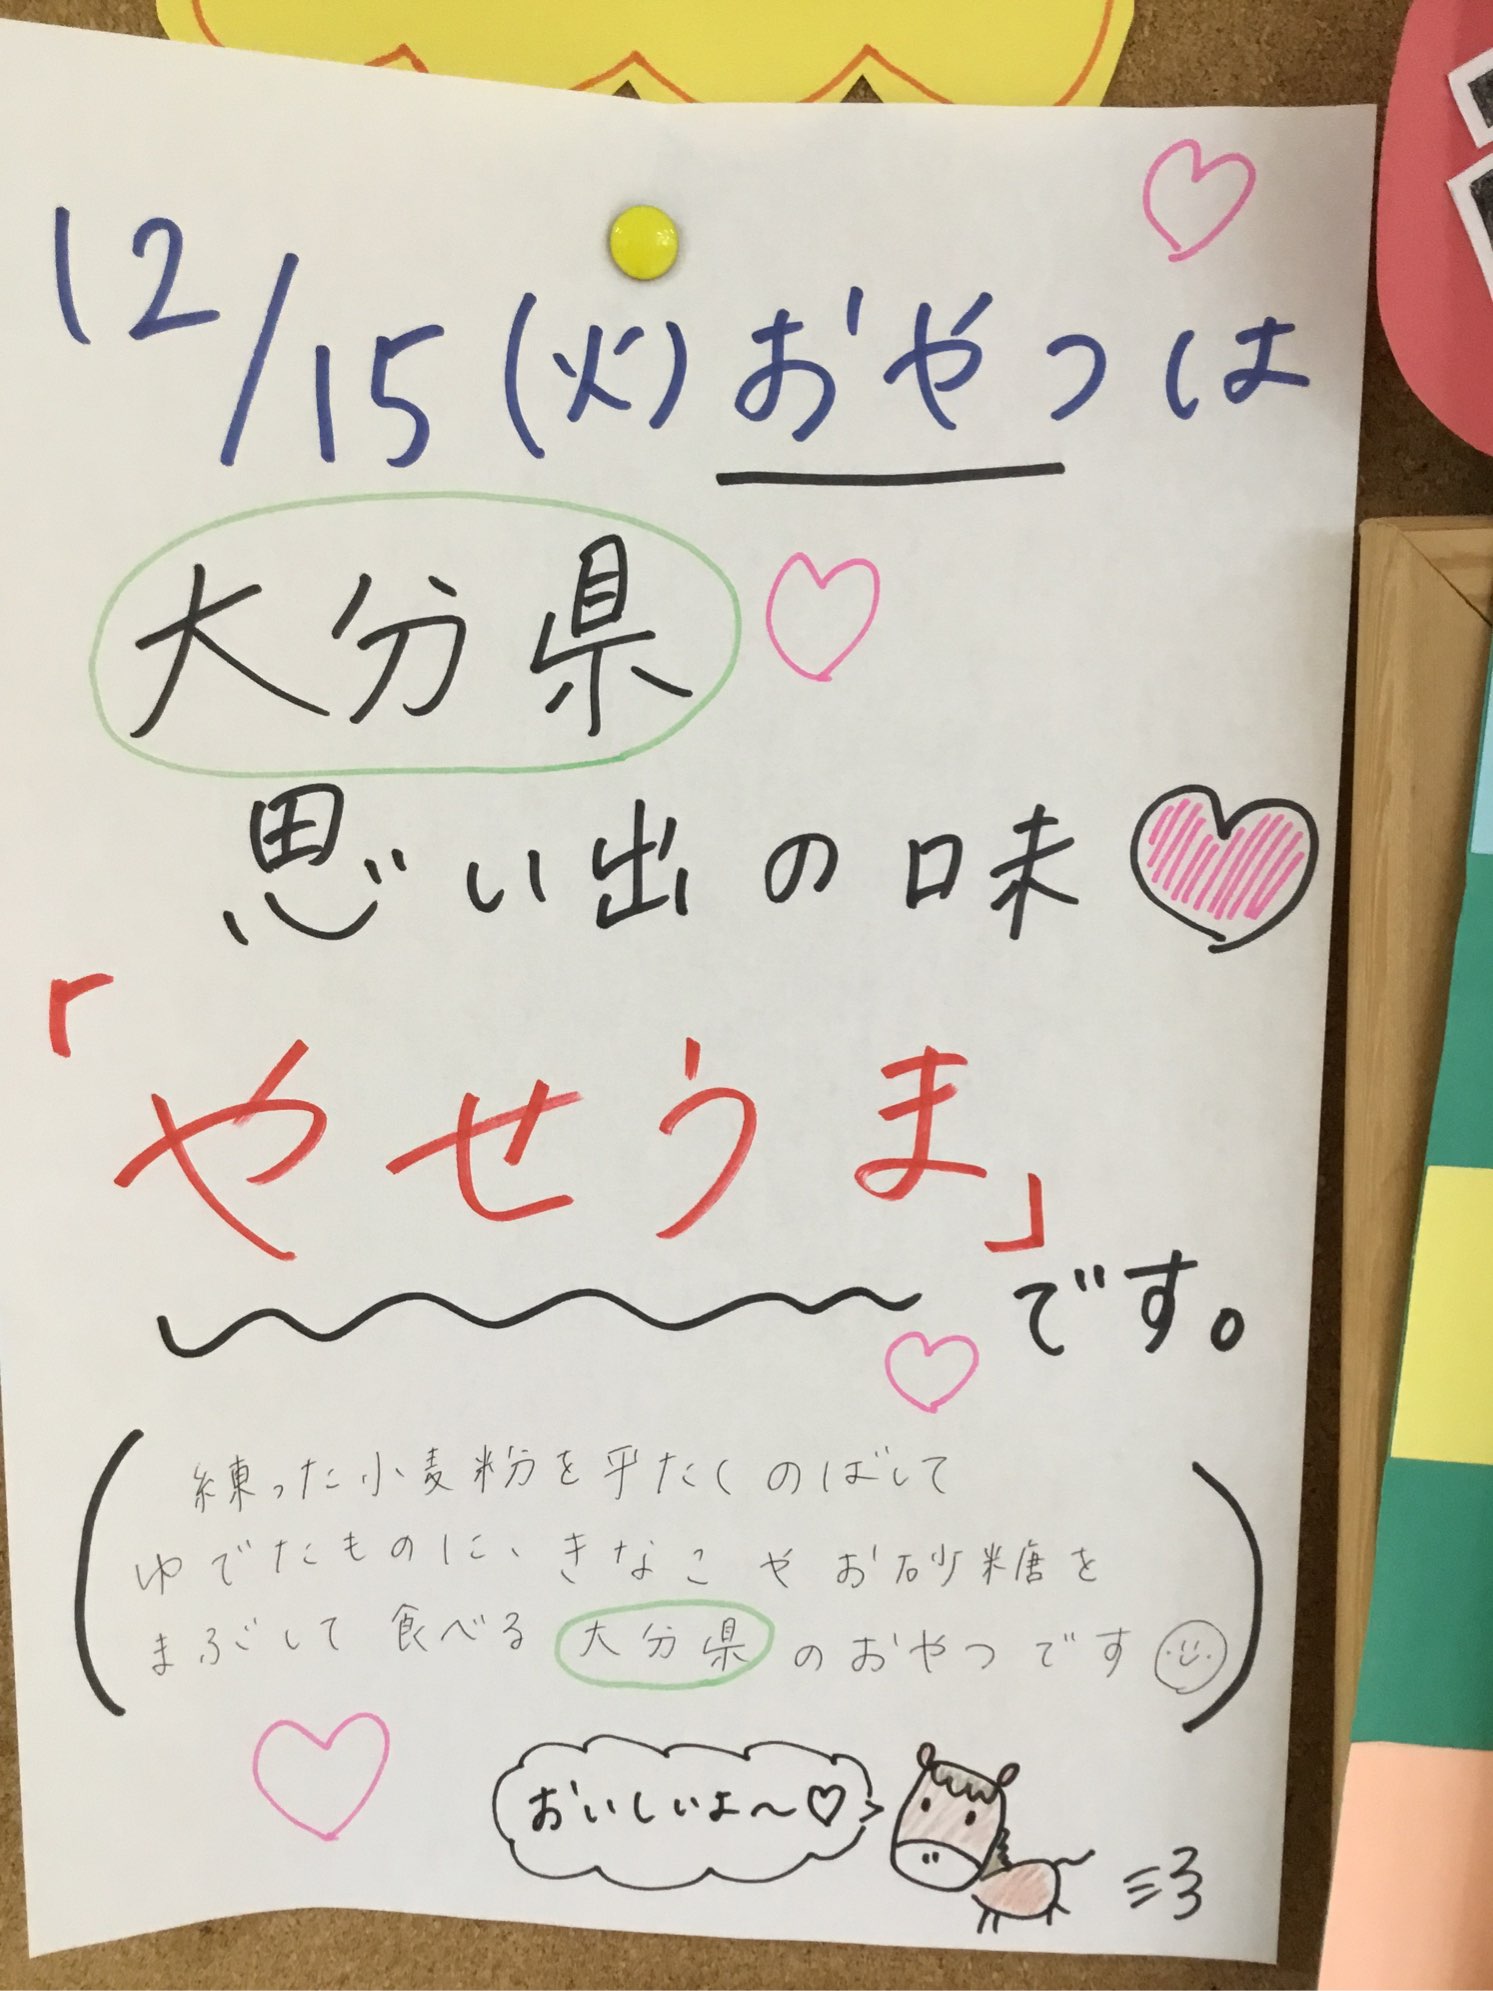 12/15(火)おやつは
大分県
思い出の味
「やせうま」
です。
練った小麦粉を平たくのばして
ゆでたものに、きなこやお砂糖を
まぶして食べる大分県のおやつです
おいしいよ〜♡